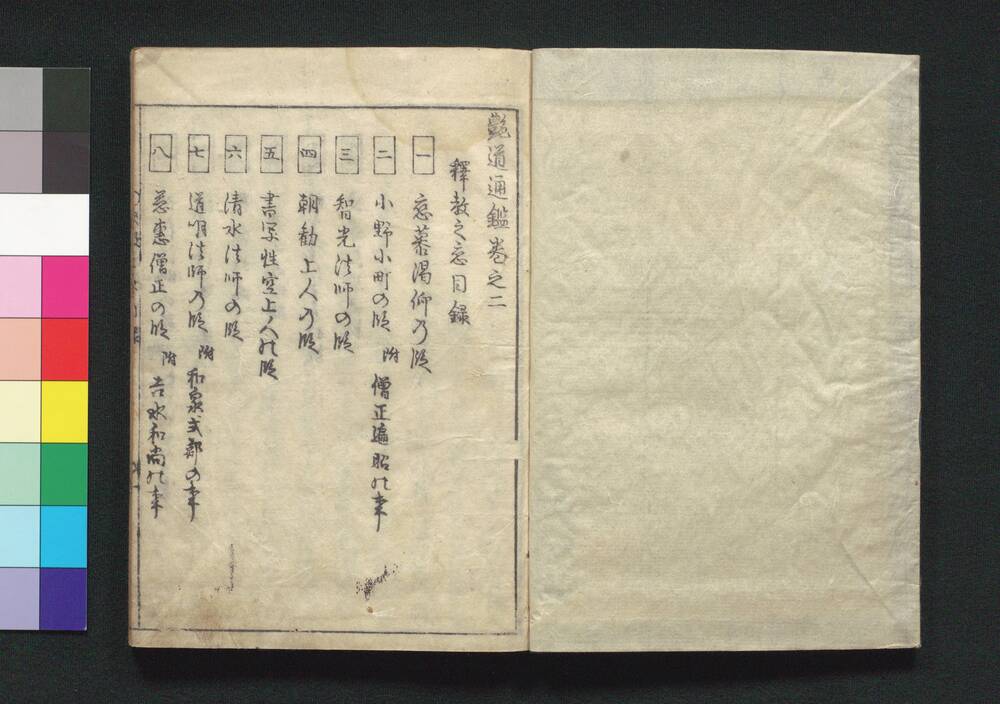 艶道通鑑巻之二
釋教之恋目録
一 恋慕渇仰乃段
二 小野小町の段 附 僧正遍昭の事
三 智光法師の段
四 朝勧上人乃段
五 書写性空上人の段
六 清水法師の段
七 道明法師乃段 附 和泉式部の事
八 慈恵僧正の段 附 吉水和尚の事